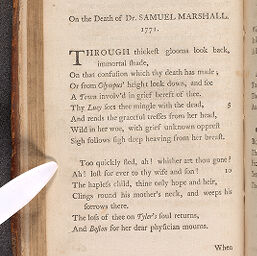 On the Death of Dr. SAMUEL MARSHALL.
1771.
THROUGH thickest glooms look back,
immortal shade,
On that confusion which thy death has made;
Or from Olympus' height look down, and see
A Town involv'd in grief bereft of thee.
Thy Lucy sees thee mingle with the dead, 5
And rends the graceful tresses from her head,
Wild in her woe, with grief unknown opprest
Sigh follows sigh deep heaving from her breast.
Too quickly fled, ah! whither art thou gone?
Ah! lost for ever to thy wife and son! 10
The hapless child, thine only hope and heir,
Clings round his mother's neck, and weeps his
sorrows there.
The loss of thee on Tyler's soul returns,
And Boston for her dear physician mourns.
When